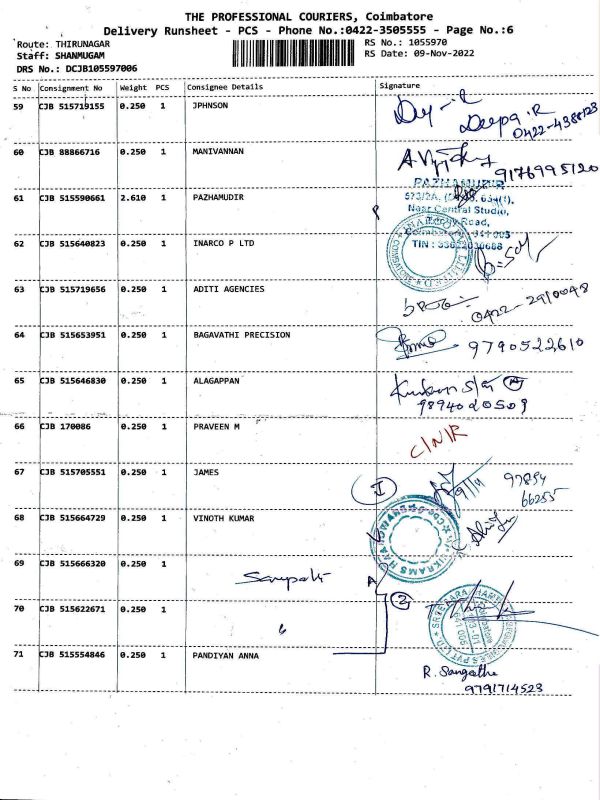 THE PROFESSIONAL COURIERS, Coimbatore
Delivery Runsheet - PCS - Phone No.:0422-3505555 - Page No.:6
Route: THIRUNAGAR RS No.: 1055970
Staff: SHANMUGAM RS Date: 09-Nov-2022
DRS No.: DCJB105597006
S No Consignment No Weight PCS Consignee Details Signature
59 CJB 515719155 0.250 1 JPHNSON
Deepa.R
60 CJB 88866716 0.250 1 MANIVANNAN
9176995120
PAZHAMUDIR
61 CJB 515590661 2.610 1 PAZHAMUDIR
Near Central Studio,
Road,
62 CJB 515640823 0.250 1 INARCO P LTD
63 CJB 515719656 0.250 1 ADITI AGENCIES
0422-2910048
64 CJB 515653951 0.250 1 BAGAVATHI PRECISION
9790522610
65 CJB 515646830 0.250 1 ALAGAPPAN
9894020509
66 CJB 170086 0.250 1 PRAVEEN M
C/N/R
67 CJB 515705551 0.250 1 JAMES
9/11
97894
66255
68 CJB 515664729 0.250 1 VINOTH KUMAR
69 CJB 515666320 0.250 1
Sampath
70 CJB 515622671 0.250 1
2
6
71 CJB 515554846 0.250 1 PANDIYAN ANNA
R. Sangatha
9791714523